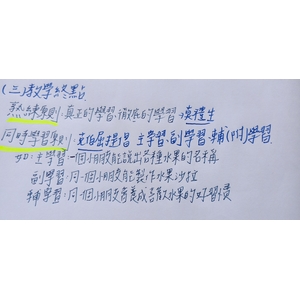 (三)教學終點
熟練原則:真正的學習,徹底的學習,
同時學習原則:克伯屈提倡 主學習、副學習、輔(附)學習
如:主學習:一個小朋友能說出各種水果的名稱
副學習:同一個小朋友能製作水果沙拉
輔學習:同一個小朋友養成喜歡水果的好習慣